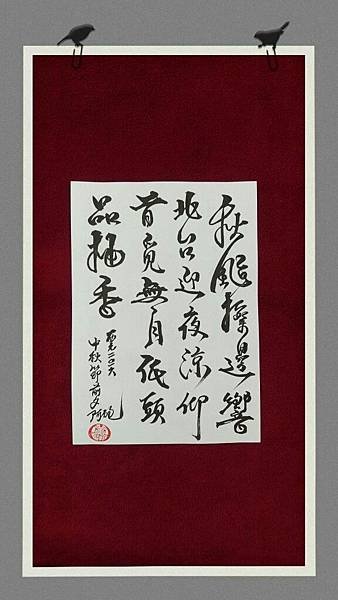 秋颱擦邊響
北台迎夜涼仰
首覓無月低頭
品柚香
中秋節前夕